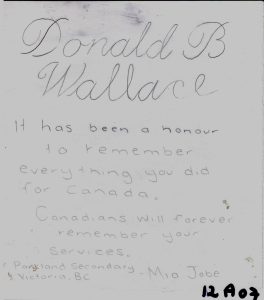 Donald B
Wallace
It has been a honour
to remember
everything you did
for Canada.
Canadians will forever
remember your
services.
Parkland Secondary - Mia Jobe
Victoria, BC
12 A 07